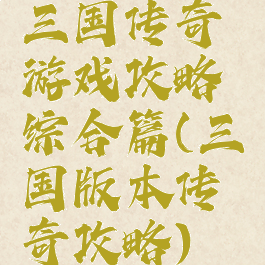 三国传奇
游戏攻略
综合篇(三
国版本传
奇攻略)